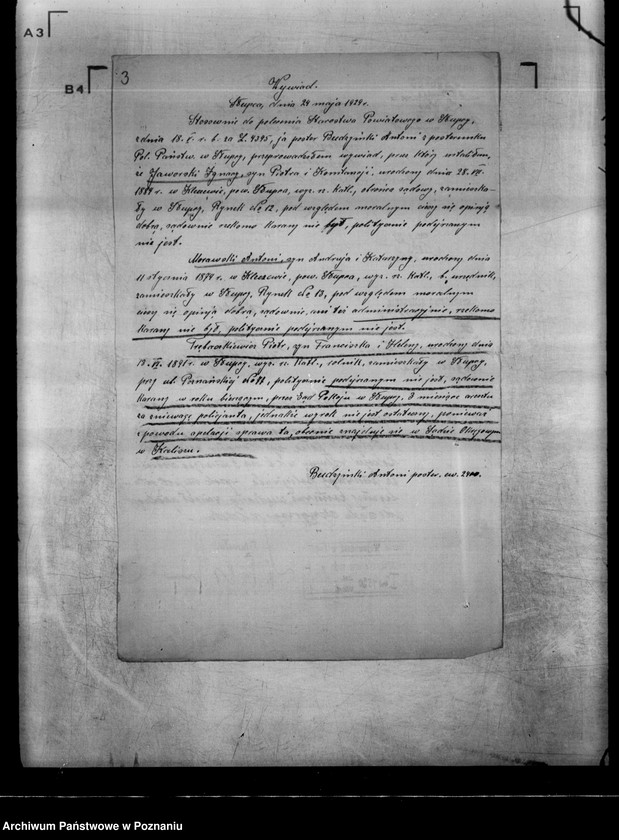 A3
B4
3
Wywiad.
Słupca, dnia 24 maja 1929 r.
Stosownie do polecenia Starostwa Powiatowego w Słupcy,
z dnia 18. V. r. b. za L. 4395, ja poster Budzyński Antoni z posterunku
Pol. Państw. w Słupcy, przeprowadziłem wywiad, przez który ustaliłem,
że Jaworski Ignacy, syn Piotra i Konstancji, urodzony dnia 28. VII.
1889 r. w Kleczewie, pow. Słupca, wyz. rz. Katl., obrońca sądowy, zamieszka-
ły w Słupcy, Rynek No 12, pod względem moralnym cieszy się opinją
dobrą, sądownie rzekomo karany nie był, politycznie podejrzanym
nie jest.
Morawski Antoni, syn Andrzeja i Katarzyny, urodzony dnia
11 stycznia 1874 r. w Kleczewie, pow. Słupca, wyz. rz. Katl., b. urzędnik,
zamieszkały w Słupcy, Rynek No 13, pod względem moralnym
cieszy się opinją dobrą, sądownie, ani też administracyjnie, rzekomo
karany nie był, politycznie podejrzanym nie jest.
Trębaczkiewicz Piotr, syn Franciszka i Heleny, urodzony dnia
1891 r. w Słupcy, wyz. rz. Katl., rolnik, zamieszkały w Słupcy,
przy ul. Poznańskiej No, politycznie podejrzanym nie jest, sądownie
karany w roku bieżącym, przez Sąd Pokoju w Słupcy, 3 miesiące aresztu
za zniewagę policjanta, jednakże wyrok nie jest ostateczny, ponieważ
z powodu apelacji sprawa ta, obecnie znajduje się w Sądzie Okręgowym
w Kaliszu.
Budzyński Antoni poster. ew.
Archiwum Państwowe w Poznaniu